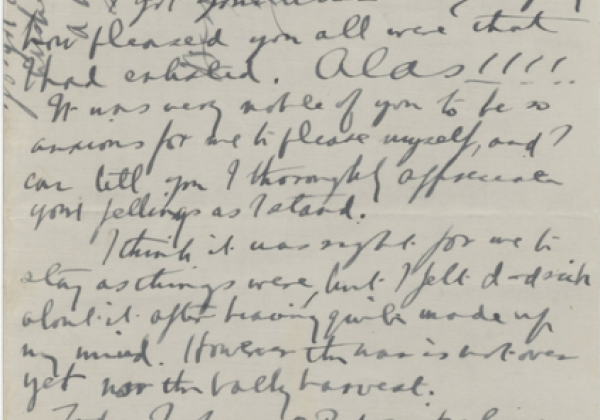 how pleased you all were that
I had enlisted. Alas!!!!
It was very noble of you to be so
anxious for me to please myself, and I
can tell you I thoroughly appreciate
your fellings as I stand.
I think it was right for me to
stay as things were, but I felt d-d sick
about it after having quite made up
my mind. However the war is not over
yet nor the bally harvest.